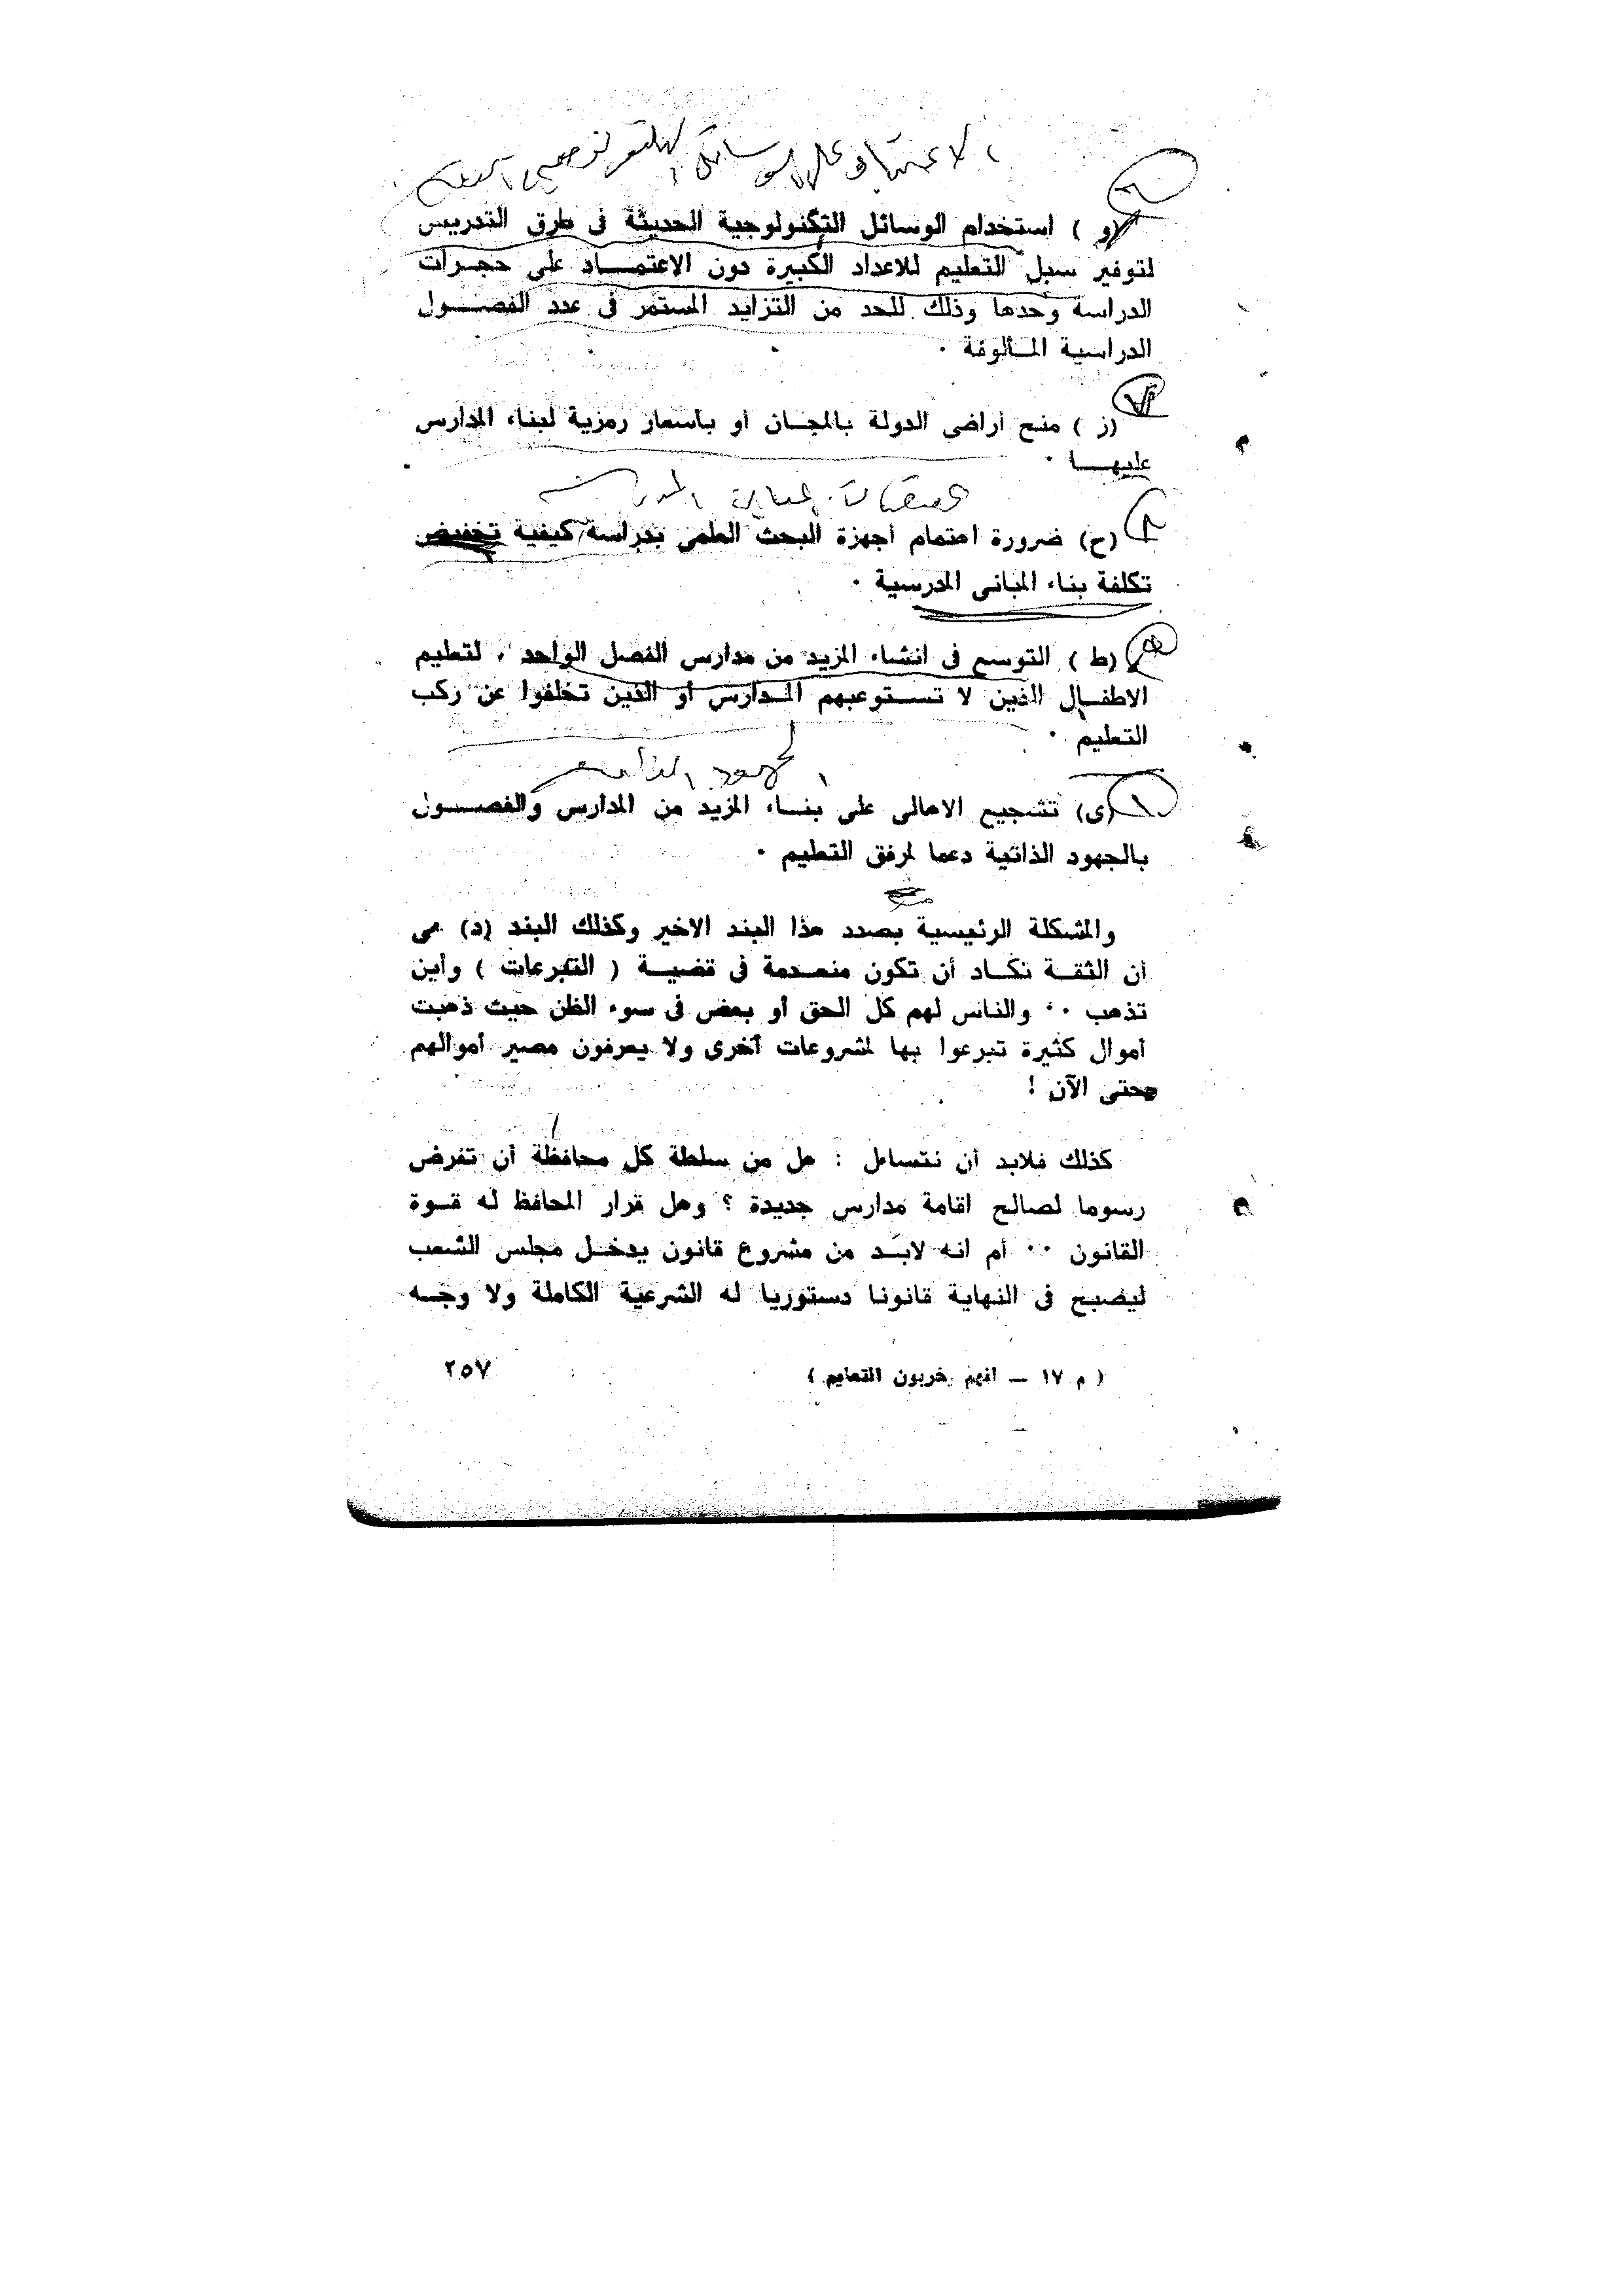 (و ) استخدام الوسائل التكنولوجية الحديثة فى طرق التدريس
لتوفير سبل التعليم للاعداد الكبيرة دون الاعتمـــاد على حجـرات
الدراسة وحدها وذلك للحد من التزايد المستمر فى عدد الفصــــول
الدراسية المـألوفة ·
(ز ) منح أراضى الدولة بالمجـان أو بأسعار رمزية لبناء المدارس
عليهـــا ·
(ح) ضرورة اهتمام أجهزة البحث العلمى بدراسة كيفية تخفيض
تكلفة بناء المبانى المدرسية ·
(ط ) التوسع فى انشاء المزيد من مدارس الفصل الواحد ، لتعليم
الاطفـال الذين لا تسـتوعبهم المـدارس أو الذين تخلفوا عن ركب
التعليم ·
الجهود الذاتية
(ى) تشجيع الاهالى على بنـاء المزيد من المدارس والفصــــول
بالجهود الذاتية دعما لمرفق التعليم ·
والمشكلة الرئيسية بصدد هذا البند الاخير وكذلك البند (د) هى
أن الثقـة تكـاد أن تكون منعـدمة فى قضيـة ( التبرعات ) وأين
تذهب ·· والناس لهم كل الحق أو بعض فى سوء الظن حيث ذهبت
أموال كثيرة تبرعوا بها لمشروعات أخرى ولا يعرفون مصير أموالهم
حتى الآن !
كذلك فلابد أن نتساءل : هل من سلطة كل محافظة أن تفرض
رسوما لصالح اقامة مدارس جديدة ؟ وهل قرار المحافظ له قـوة
القانون ·· أم انه لابـد من مشروع قانون يدخـل مجلس الشعب
ليصبح فى النهاية قانونا دستوريا له الشرعية الكاملة ولا وجـه
( م ١٧ — انهم يخربون التعليم )
٢٥٧